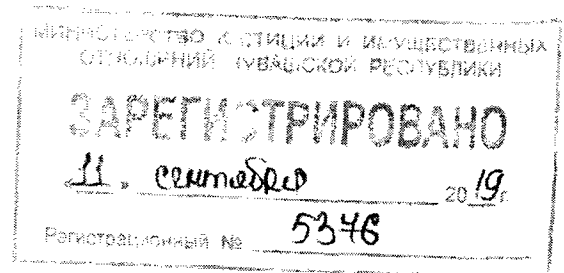 МИНИСТЕРСТВО ЮСТИЦИИ И ИМУЩЕСТВЕННЫХ
ОТНОШЕНИЙ ЧУВАШСКОЙ РЕСПУБЛИКИ
ЗАРЕГИСТРИРОВАНО
„11" сентября 2019г.
Регистрационный № 5376